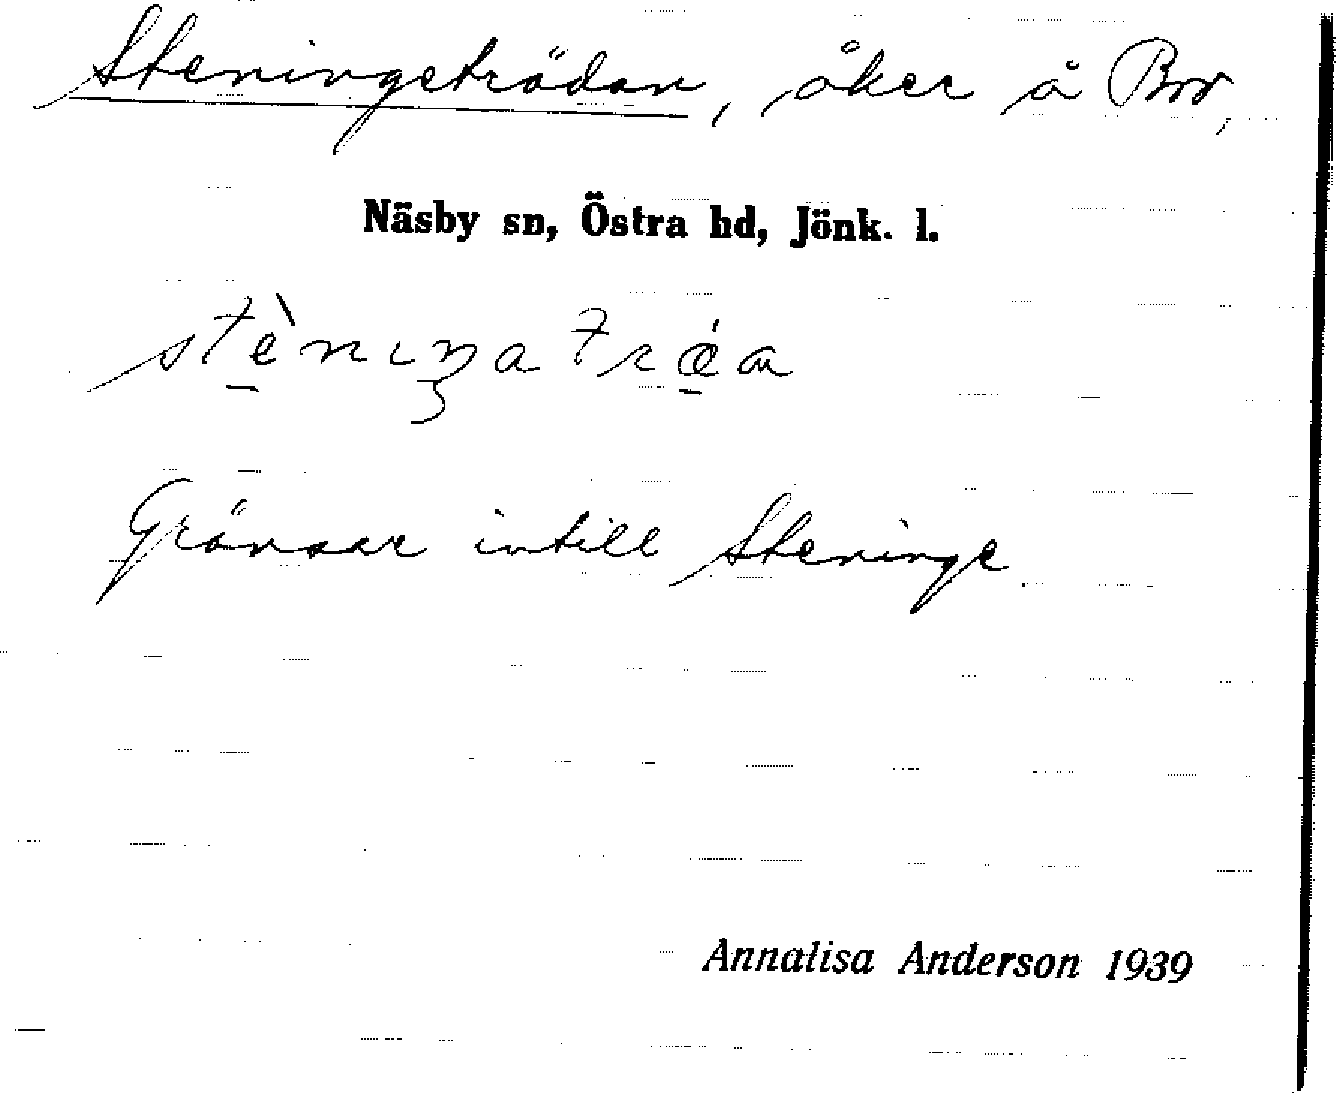 Steningeträdan, åker å Bro,
Näsby sn, Östra hd, Jönk. l.
stè̠nıŋa trǽ̠a
Gränsar intill Steninge.
Annalisa Anderson 1939